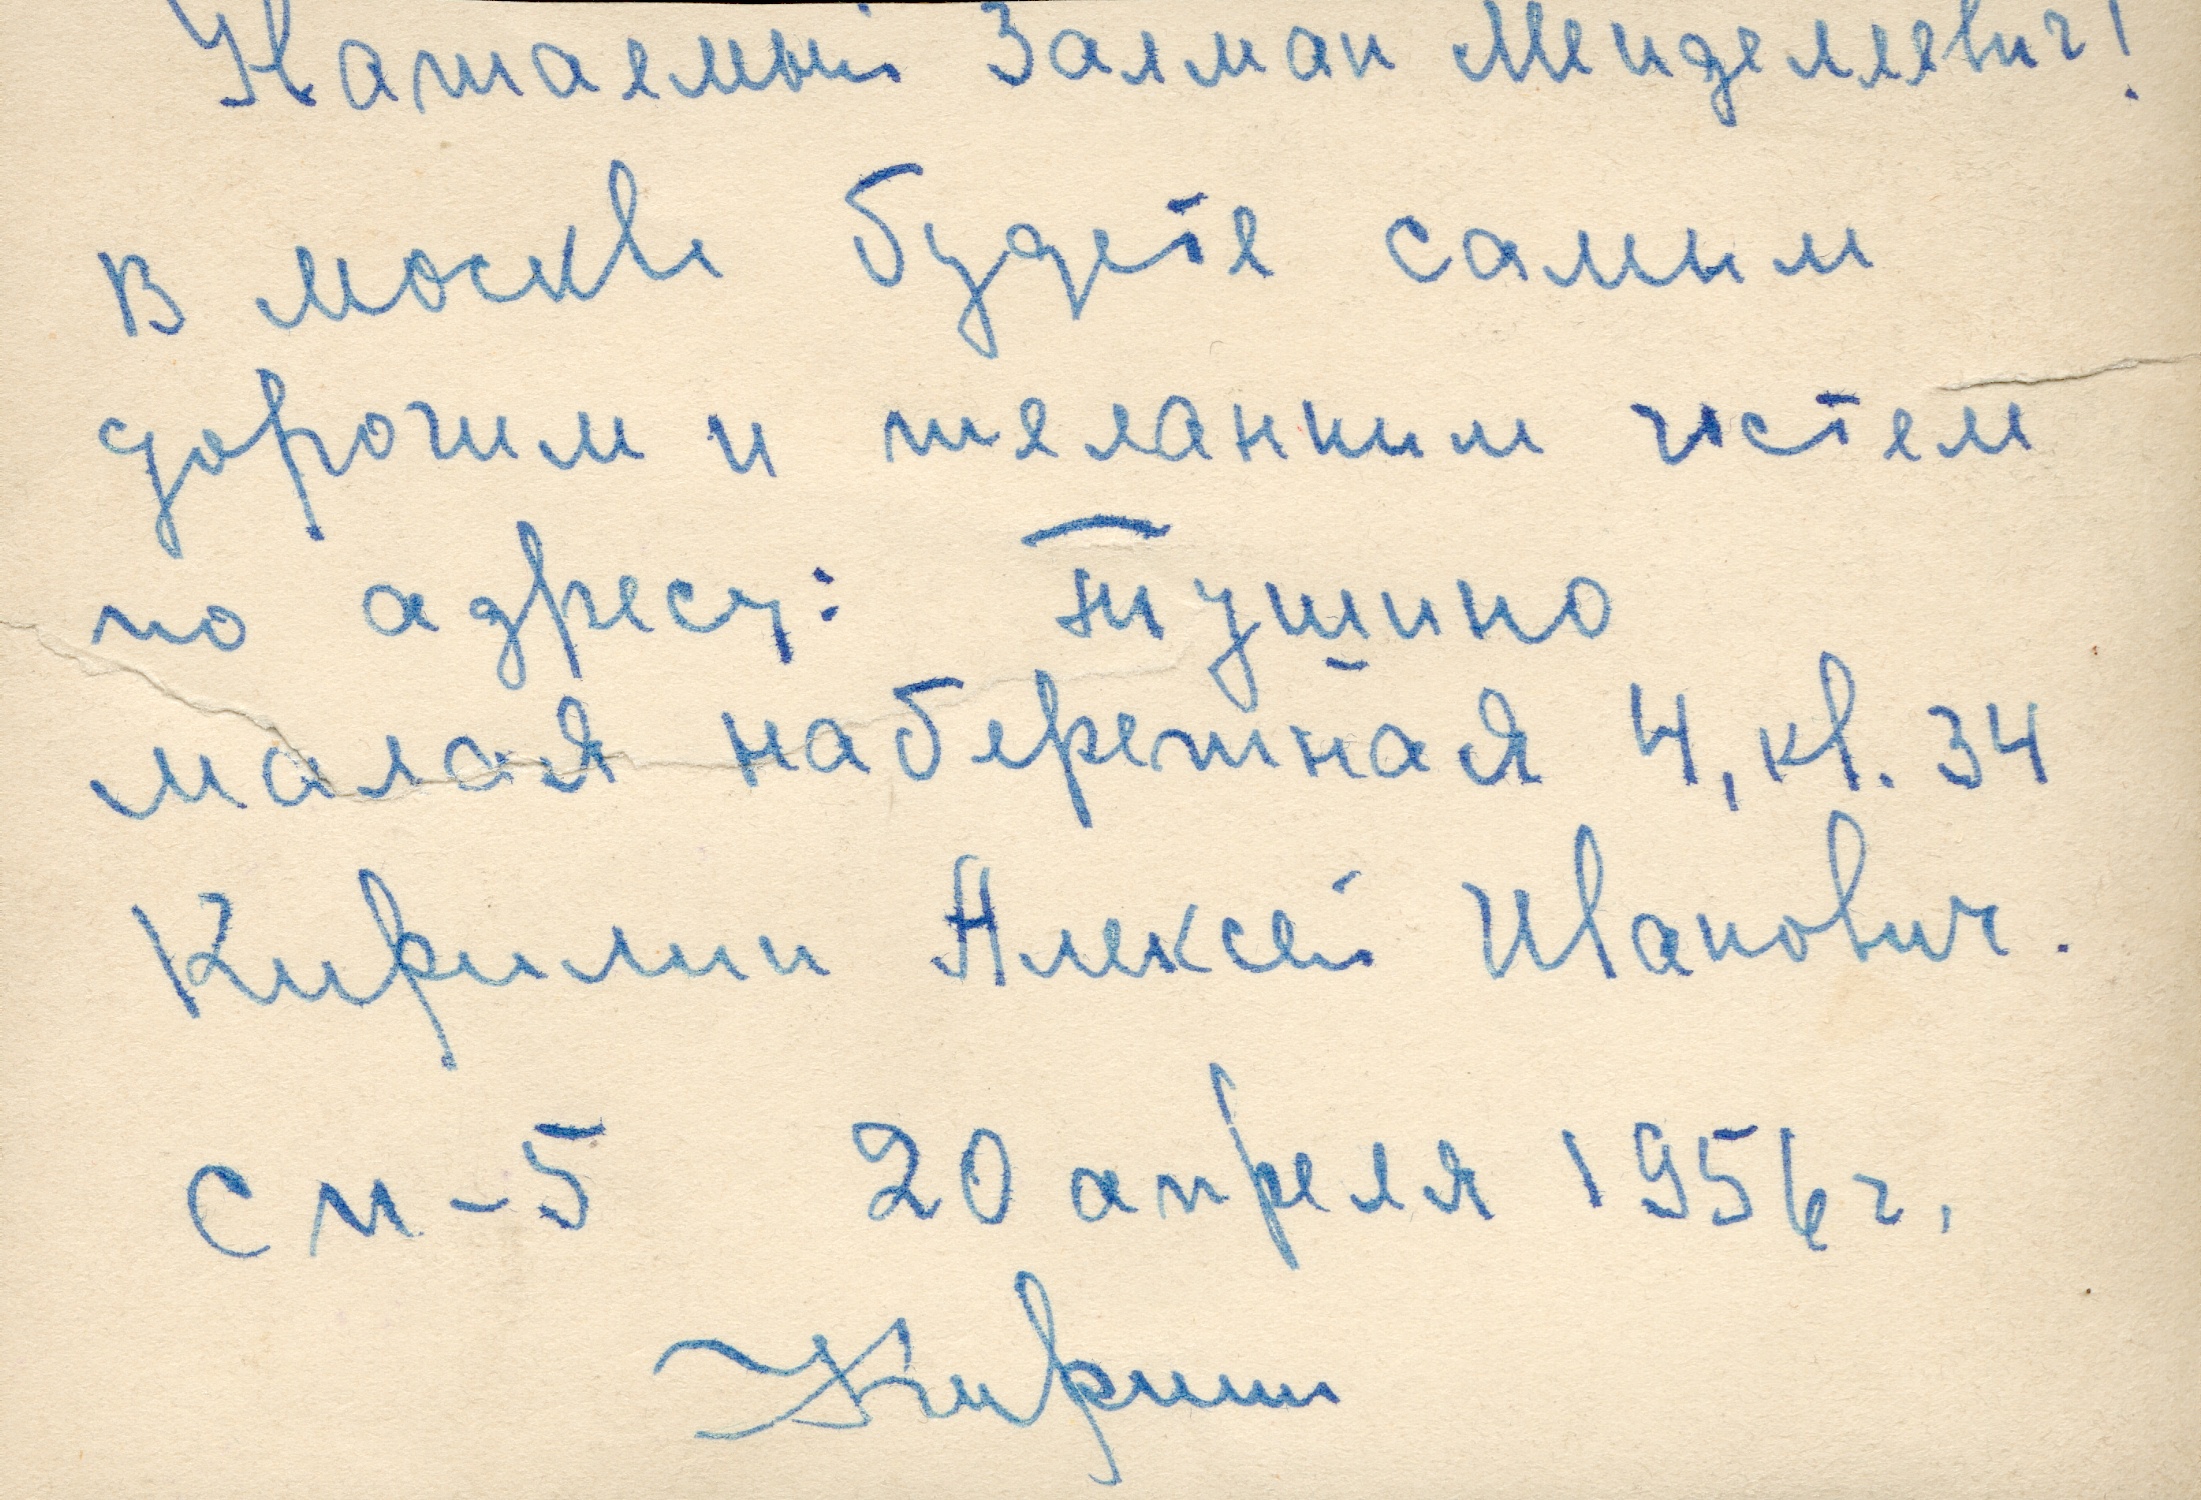 Уважаемый Залман Менделеевич!
В Москве будете самым
дорогим и желанним гостем
по адресу: Тушино
малая набережная 4, кв. 34
Кирилин Алексей Иванович.
СП-5 20 апреля 1956 г.
Кирилин